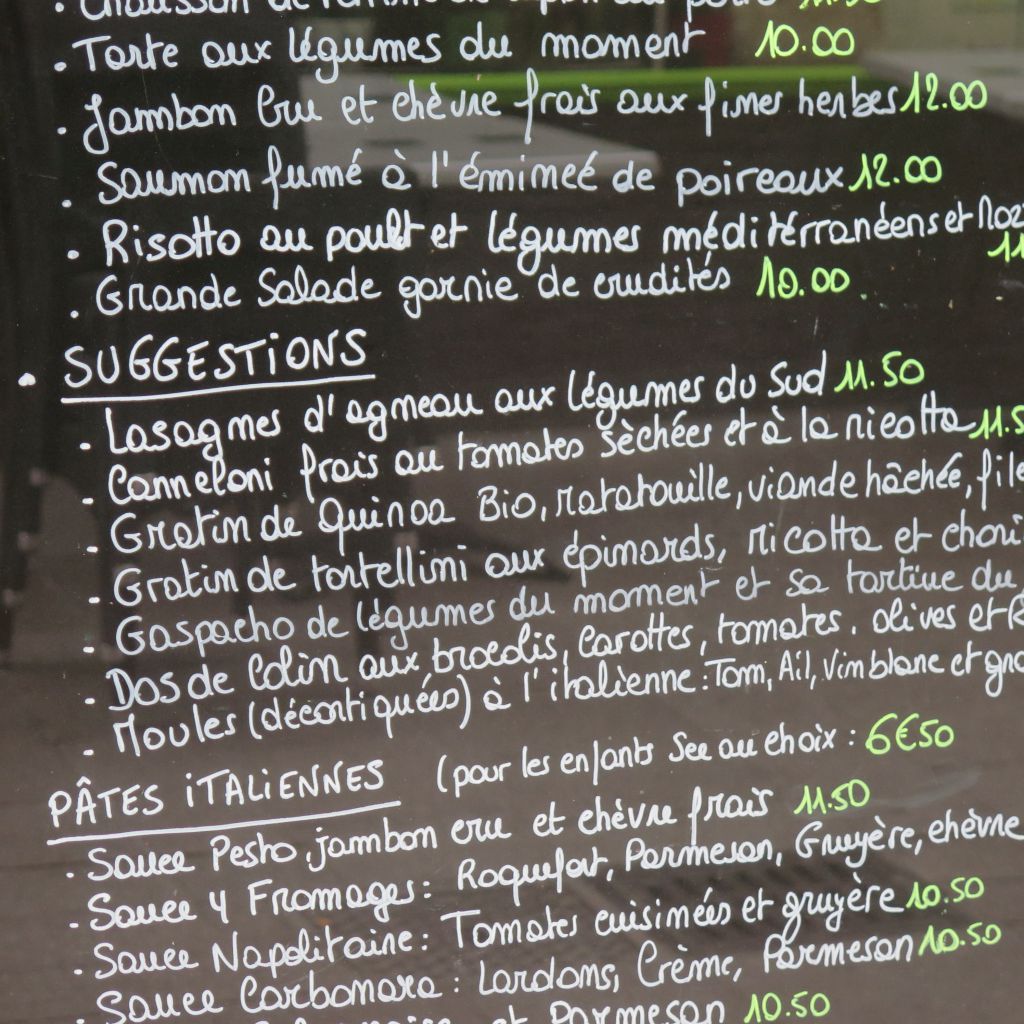 11.50
. Tarte aux légumes du moment 10.00
. Jambon Cru et chèvre frais aux fines herbes 12.00
. Saumon fumé à l'émineé de poireaux 12.00
. Risotto au poulet et légumes méditérranéens et Noz
11
. Grande Salade garnie de crudités 10.00
. SUGGESTIONS
. Lasagnes d'agneau aux légumes du Sud 11.50
. Canneloni frais au tomates sèchées et à la ricotta 11.5
. Gratin de Quinoa Bio, ratatouille, viande hâchée, file
. Gratin de tortellini aux épinards, ricotta et chori
. Gaspacho de légumes du moment et sa tartine du
. Dos de Colin aux brocolis, Carottes, tomates, olives et
. Moules (décortiquées) à l'italienne: Tom, Ail, Vin blanc et gno
PÂTES iTALiENNES (pour les enfants See au choix : 6€50
. Sauce Pesto, jambon cru et chèvre frais 11.50
. Sauce 4 Fromages: Roquefort, Parmesan, Gruyère, chèvre
. Sauce Napolitaine: Tomates cuisinées et gruyère 10.50
. Sauce Carbonara : Lardons, Crème, Parmesan 10.50
et Parmesan 10.50